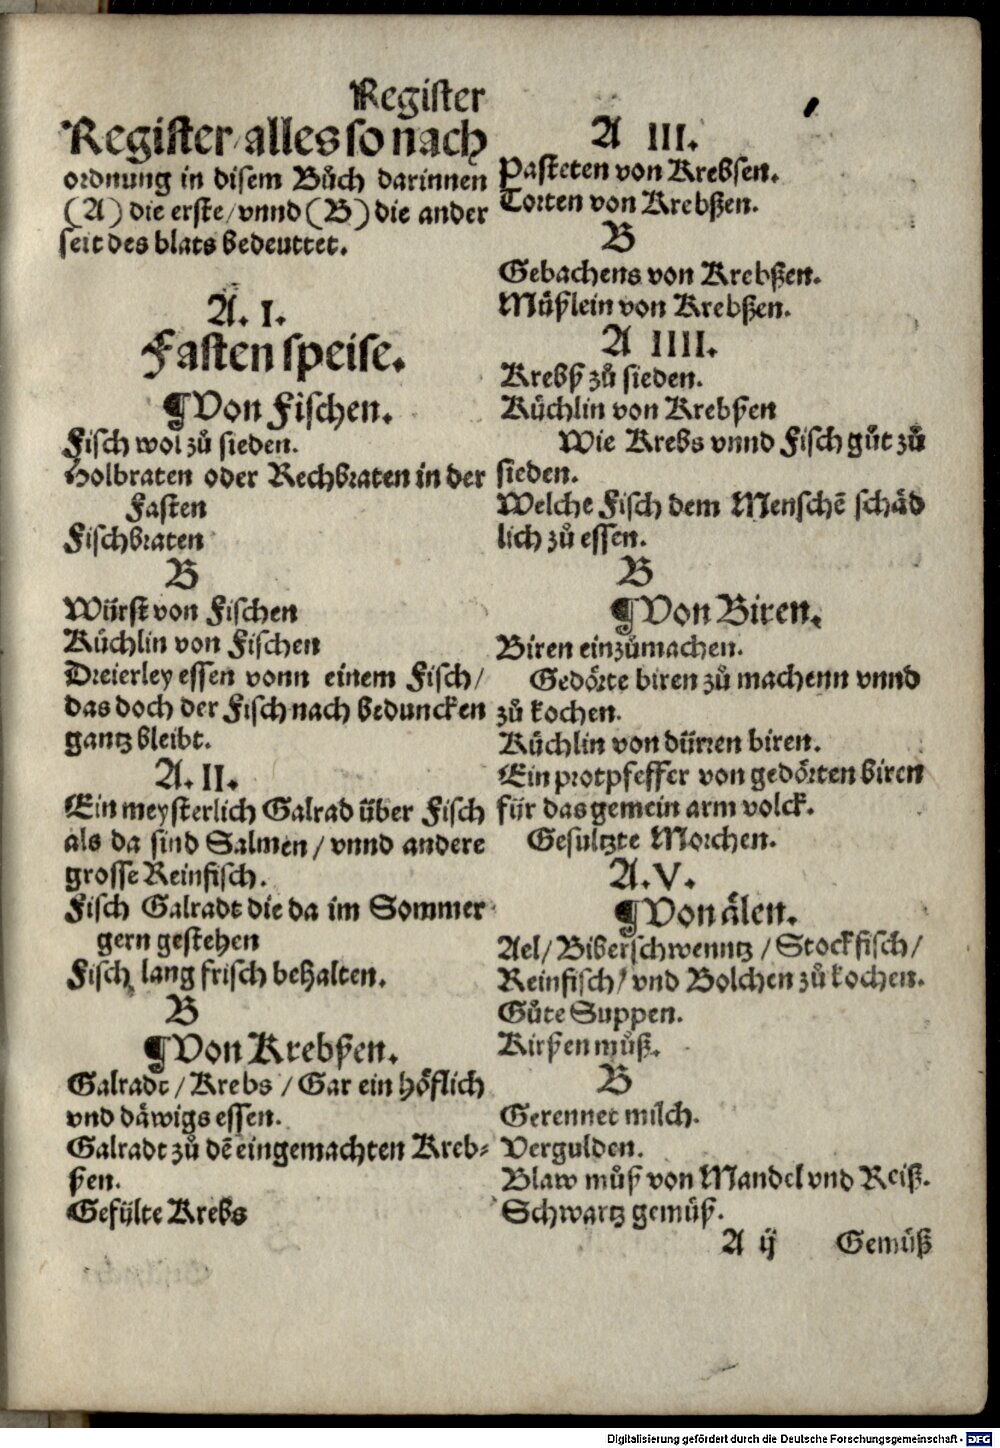 Register
Register/alles so nach
ordnung in disem Bůch darinnen
(A) die erste/vnnd (B) die ander
seit des blats bedeuttet.
A. I.
Fasten speise.
¶Von Fischen.
Fisch wol zů sieden.
Holbraten oder Rechbraten in der
Fasten
Fischbraten
B
Würst von Fischen
Küchlin von Fischen
Dreierley essen vonn einem Fisch/
das doch der Fisch nach beduncken
gantz bleibt.
A. II.
Ein meysterlich Galrad über Fisch
als da sind Salmen/vnnd andere
grosse Reinfisch.
Fisch Galradt die da im Sommer
gern gestehen
Fisch lang frisch behalten.
B
¶Von Krebßen.
Galradt/Krebs/Gar ein höflich
vnd däwigs essen.
Galradt zů dē eingemachten Kreb-
ßen.
Gefülte Krebs
A III.
Pasteten von Krebsen.
Torten von Krebßen.
B
Gebachens von Krebßen.
Müßlein von Krebßen.
A IIII.
Krebß zů sieden.
Küchlin von Krebßen
Wie Krebs vnnd Fisch gůt zů
sieden.
Welche Fisch dem Menschē schäd
lich zů essen.
B
¶Von Biren.
Biren einzůmachen.
Gedörte biren zů machenn vnnd
zů kochen.
Küchlin von dürren biren.
Ein protpfeffer von gedörten biren
für das gemein arm volck.
Gesultzte Morchen.
A. V.
¶Von älen.
Ael/Biberschwenntz/Stockfisch/
Reinfisch/vnd Bolchen zů kochen.
Gůte Suppen.
Kirßen můß.
B
Gerennet milch.
Vergulden.
Blaw můß von Mandel vnd Reiß.
Schwartz gemüß.
A ij Gemüß
Digitalisierung gefördert durch die Deutsche Forschungsgemeinschaft - DFG